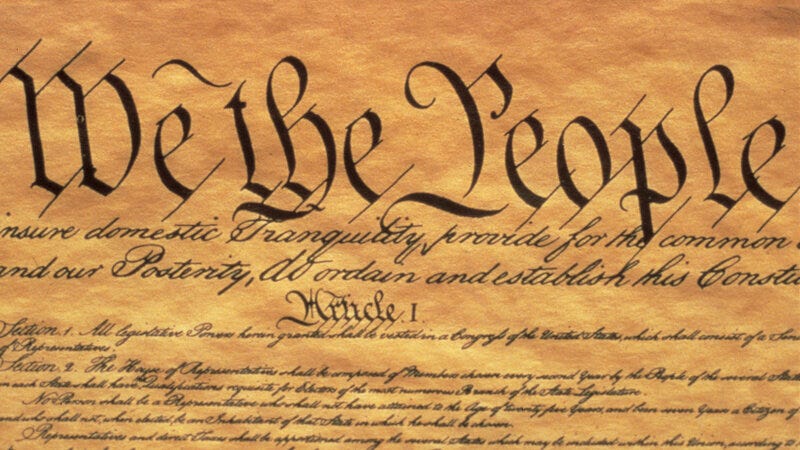 We the People
insure domestic Tranquility, provide for the common
and our Posterity, do ordain and establish this Constit
Article. I.
Section. 1. All legislative Powers herein granted shall be vested in a Congress of the United States, which shall consist of a Sen
of Representatives.
Section. 2. The House of Representatives shall be composed of Members chosen every second Year by the People of the several States
in each State shall have Qualifications requisite for Electors of the most numerous Branch of the State Legislature.
No Person shall be a Representative who shall not have attained to the Age of twenty five Years, and been seven Years a Citizen of
and who shall not, when elected, be an Inhabitant of that State in which he shall be chosen.
Representatives and direct Taxes shall be apportioned among the several States which may be included within this Union, according to